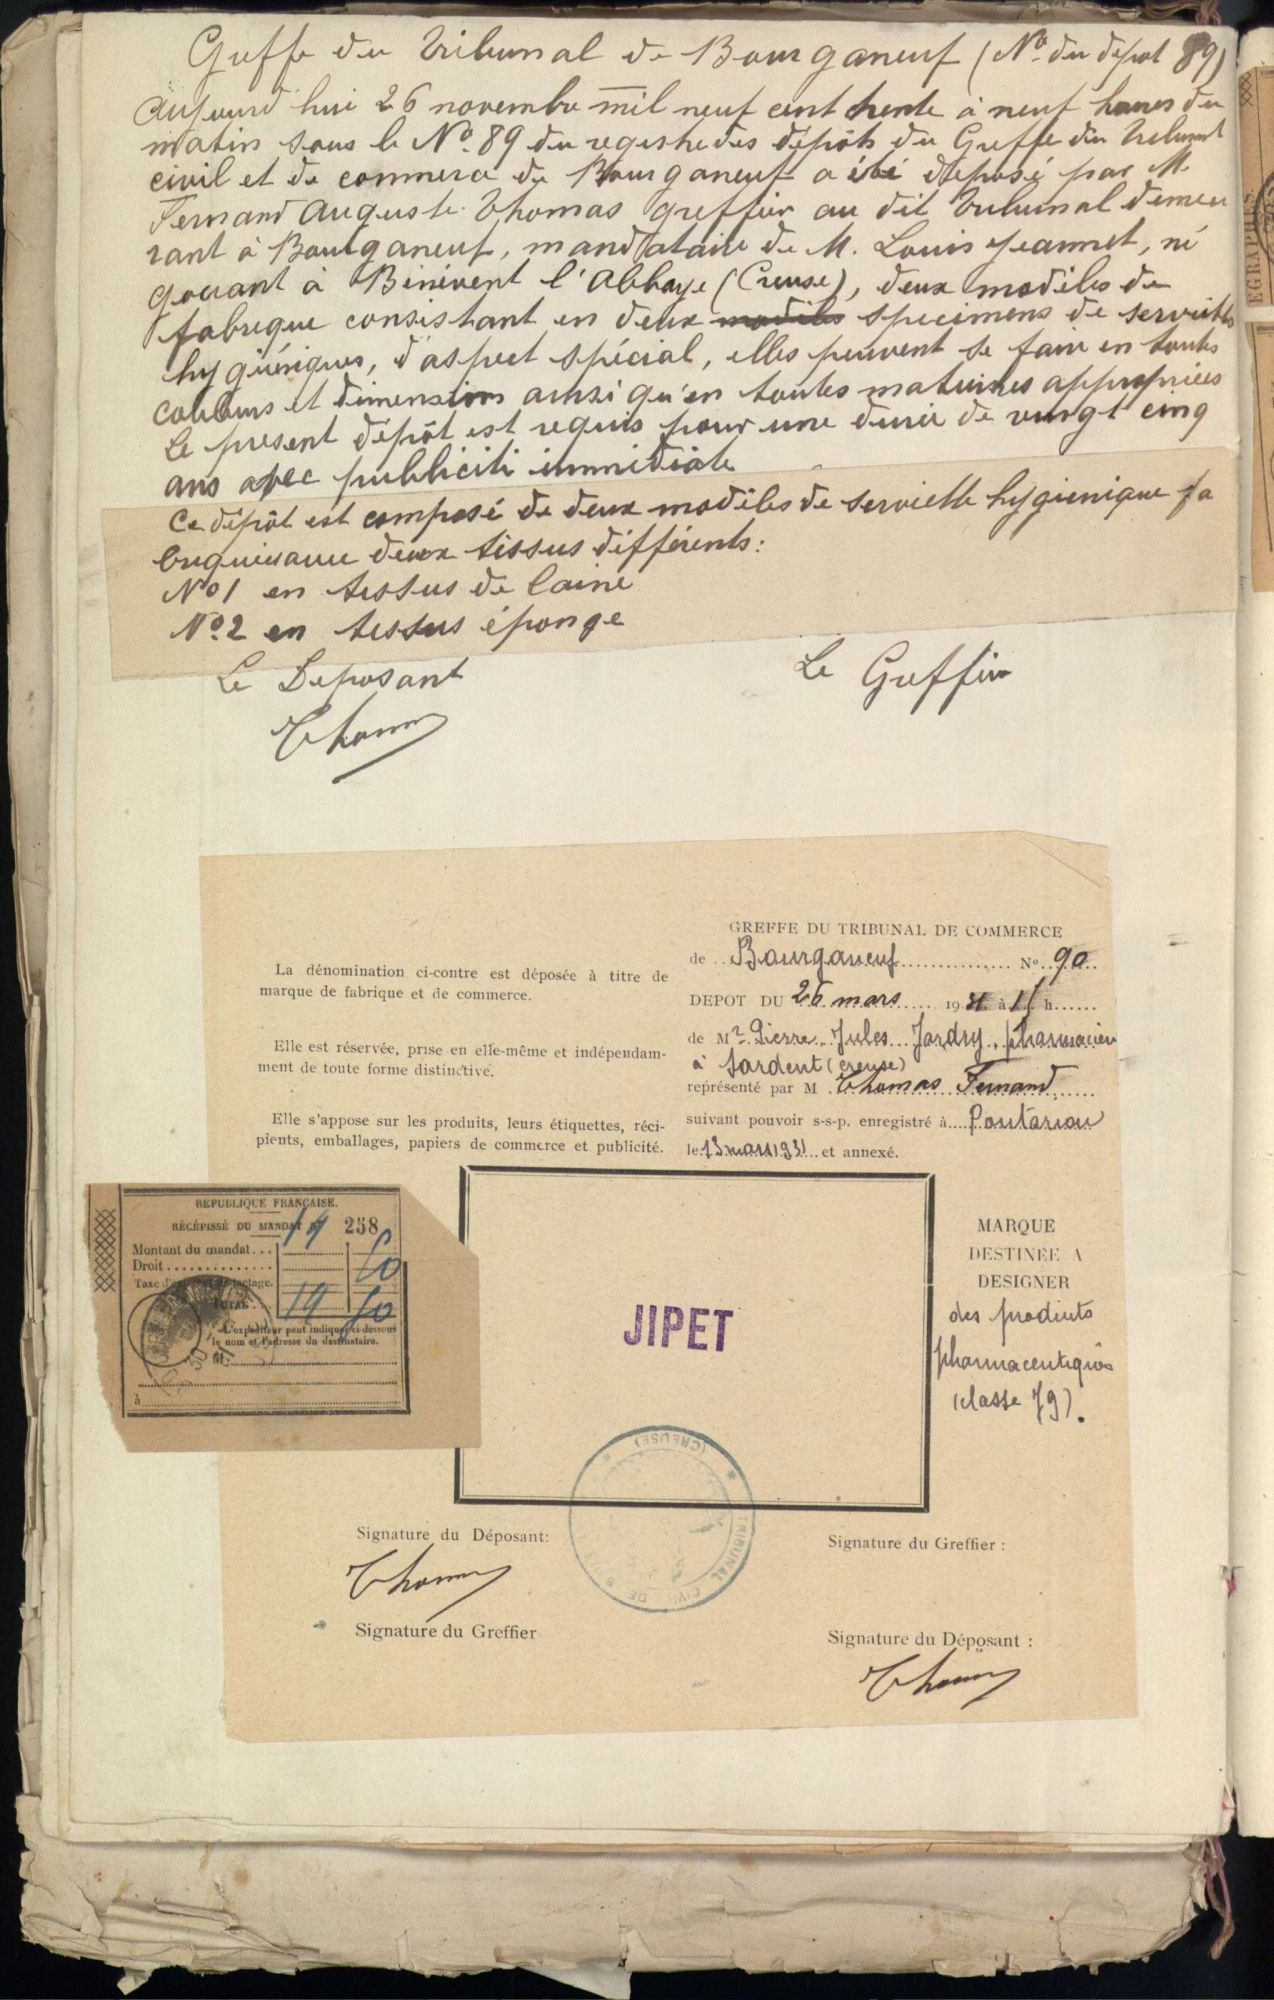 Greffe du Tribunal de Bourganeuf (No du dépot 89)
Aujourd'hui 26 novembre mil neuf cent trente à neuf heures du
matin sous le No 89 du registre des dépôts du Greffe du Tribunal
civil et de commerce de Bourganeuf a été déposé par M.
Fernand Auguste Thomas greffier au dit Tribunal demeu
rant à Bourganeuf, mandataire de M. Louis Jeannet, né
gociant à Bénévent l'Abbaye (Creuse), deux modèles de
fabrique consistant en deux modèles spécimens de serviettes
hygiéniques, d'aspect spécial, elles peuvent se faire en toutes
couleurs et dimensions ainsi qu'en toutes matières appropriées
Le présent dépôt est requis pour une durée de vingt cinq
ans avec publicité immédiate
Ce dépôt est composé de deux modèles de serviette hygiénique fa
briquées avec deux tissus différents:
No 1 en tissus de laine
No 2 en tissus éponge
Le Deposant
Le Greffier
Thomas
GREFFE DU TRIBUNAL DE COMMERCE
de Bourganeuf No 90
DEPOT DU 26 mars 1931 à 11 h
de Mr Pierre Jules Jardry, pharmacien
à Sardent (Creuse)
représenté par M Thomas Fernand
suivant pouvoir s-s-p. enregistré à Pontarion
le 13 mars 1931 et annexé.
La dénomination ci-contre est déposée à titre de
marque de fabrique et de commerce.
Elle est réservée, prise en elle-même et indépendam-
ment de toute forme distinctive.
Elle s'appose sur les produits, leurs étiquettes, réci-
pients, emballages, papiers de commerce et publicité.
REPUBLIQUE FRANÇAISE.
RÉCÉPISSÉ DU MANDAT No 258
Montant du mandat... 19 50
Droit
Taxe
TOTAL. 19 50
L'expéditeur peut indiquer ci-dessous
le nom et l'adresse du destinataire.
M.
à
JIPET
MARQUE
DESTINÉE A
DESIGNER
des produits
pharmaceutiques
(classe 79).
(CREUSE)
TRIBUNAL CIVIL DE
Signature du Déposant:
Thomas
Signature du Greffier
Signature du Greffier :
Signature du Déposant :
Thomas